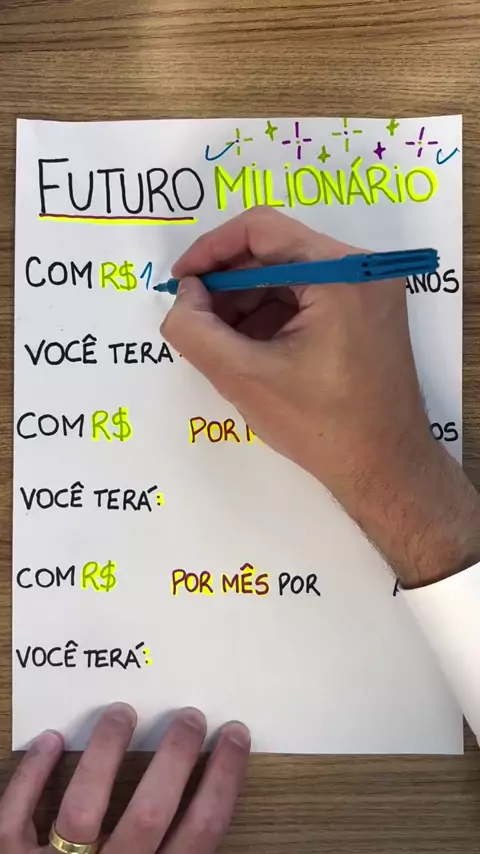 FUTURO MILIONÁRIO
COM R$ 1 ANOS
VOCÊ TERÁ
COM R$ POR
VOCÊ TERÁ:
COM R$ POR MÊS POR
VOCÊ TERÁ: